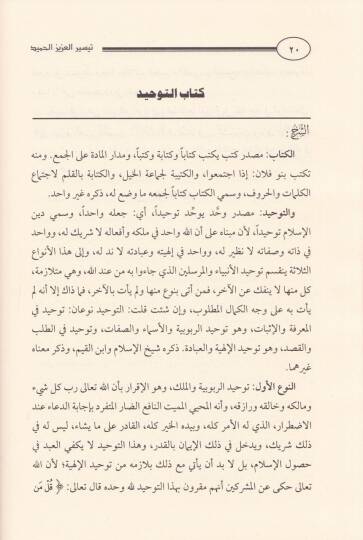 ٢٠
تيسير العزيز الحميد
كتاب التوحيد
الشرح:
الكتاب: مصدر كتب يكتب كتاباً وكتابة وكتباً، ومدار المادة على الجمع. ومنه
تكتب بنو فلان: إذا اجتمعوا، والكتيبة لجماعة الخيل، والكتابة بالقلم لاجتماع
الكلمات والحروف، وسمي الكتاب كتاباً لجمعه ما وضع له، ذكره غير واحد.
والتوحيد: مصدر وحَّد يوحِّد توحيداً، أي: جعله واحداً، وسمي دين
الإسلام توحيداً، لأن مبناه على أن الله واحد في ملكه وأفعاله لا شريك له، وواحد
في ذاته وصفاته لا نظير له، وواحد في إلهيته وعبادته لا ند له، وإلى هذا الأنواع
الثلاثة ينقسم توحيد الأنبياء والمرسلين الذي جاءوا به من عند الله، وهي متلازمة،
كل منها لا ينفك عن الآخر، فمن أتى بنوع منها ولم يأت بالآخر، فما ذاك إلا أنه لم
يأت به على وجه الكمال المطلوب، وإن شئت قلت: التوحيد نوعان: توحيد في
المعرفة والإثبات، وهو توحيد الربوبية والأسماء والصفات، وتوحيد في الطلب
والقصد، وهو توحيد الإلهية والعبادة. ذكره شيخ الإسلام وابن القيم، وذكر معناه
غيرهما.
النوع الأول: توحيد الربوبية والملك، وهو الإقرار بأن الله تعالى رب كل شيء
ومالكه وخالقه ورازقه، وأنه المحيي المميت النافع الضار المتفرد بإجابة الدعاء عند
الاضطرار، الذي له الأمر كله، وبيده الخير كله، القادر على ما يشاء، ليس له في
ذلك شريك، ويدخل في ذلك الإيمان بالقدر، وهذا التوحيد لا يكفي العبد في
حصول الإسلام، بل لا بد أن يأتي مع ذلك بلازمه من توحيد الإلهية؛ لأن الله
تعالى حكى عن المشركين أنهم مقرون بهذا التوحيد لله وحده قال تعالى: ﴿ قُلْ مَن